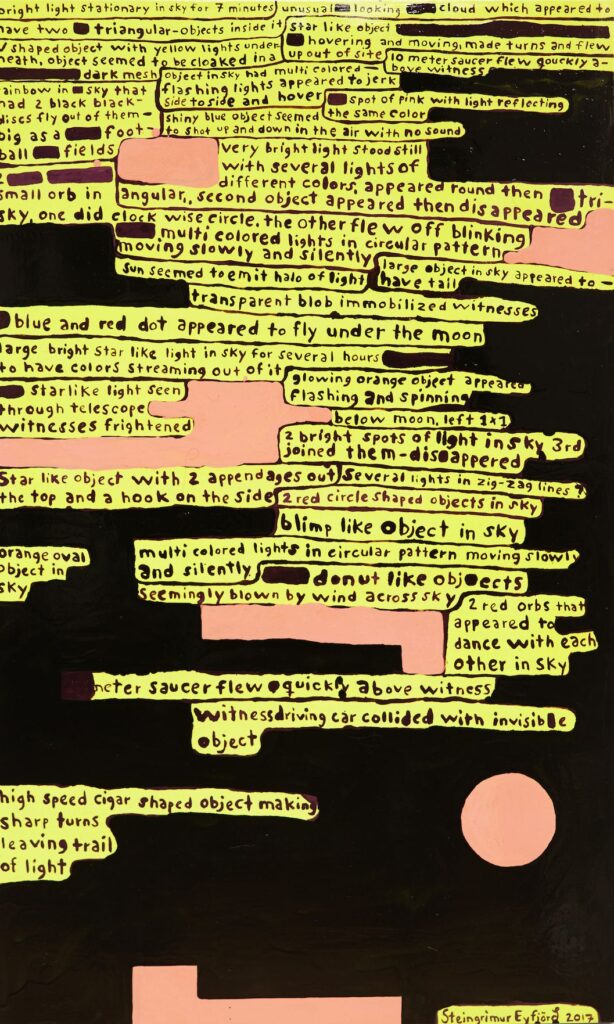 bright light stationary in sky for 7 minutes
unusual looking cloud which appeared to
have two triangular-objects inside it
star like object
hovering and moving, made turns and flew
up out of site
V shaped object with yellow lights under
neath, object seemed to be cloaked in a
dark mesh
10 meter saucer flew quuckly a-
bove witness
object in sky had multi colored
flashing lights appeared to jerk
side to side and hover
rainbow in sky that
had 2 black black-
discs fly out of them-
big as a foot-
ball fields
spot of pink with light reflecting
the same color
shiny blue object seemed
to shot up and down in the air with no sound
very bright light stood still
with several lights of
different colors, appeared round then tri-
angular, second object appeared then disappeared
2
small orb in
sky, one did clock wise circle, the other flew off blinking
multi colored lights in circular pattern
moving slowly and silently
sun seemed to emit halo of light
large object in sky appeared to -
have tail
transparent blob immobilized witnesses
blue and red dot appeared to fly under the moon
large bright star like light in sky for several hours
to have colors streaming out of it
glowing orange object appeared
flashing and spinning
starlike light seen
through telescope
witnesses frightened
below moon, left 1x1
2 bright spots of light in sky 3rd
joined them-disappered
Star like object with 2 appendages out
the top and a hook on the side
Several lights in zig-zag lines ?
2 red circle shaped objects in sky
blimp like object in sky
orange oval
object in
sky
multi colored lights in circular pattern moving slowly
and silently
donut like objects
seemingly blown by wind across sky
2 red orbs that
appeared to
dance with each
other in sky
meter saucer flew quickly above witness
witness driving car collided with invisible
object
high speed cigar shaped object making
sharp turns
leaving trail
of light
Steingrimur Eyfjörd 2017